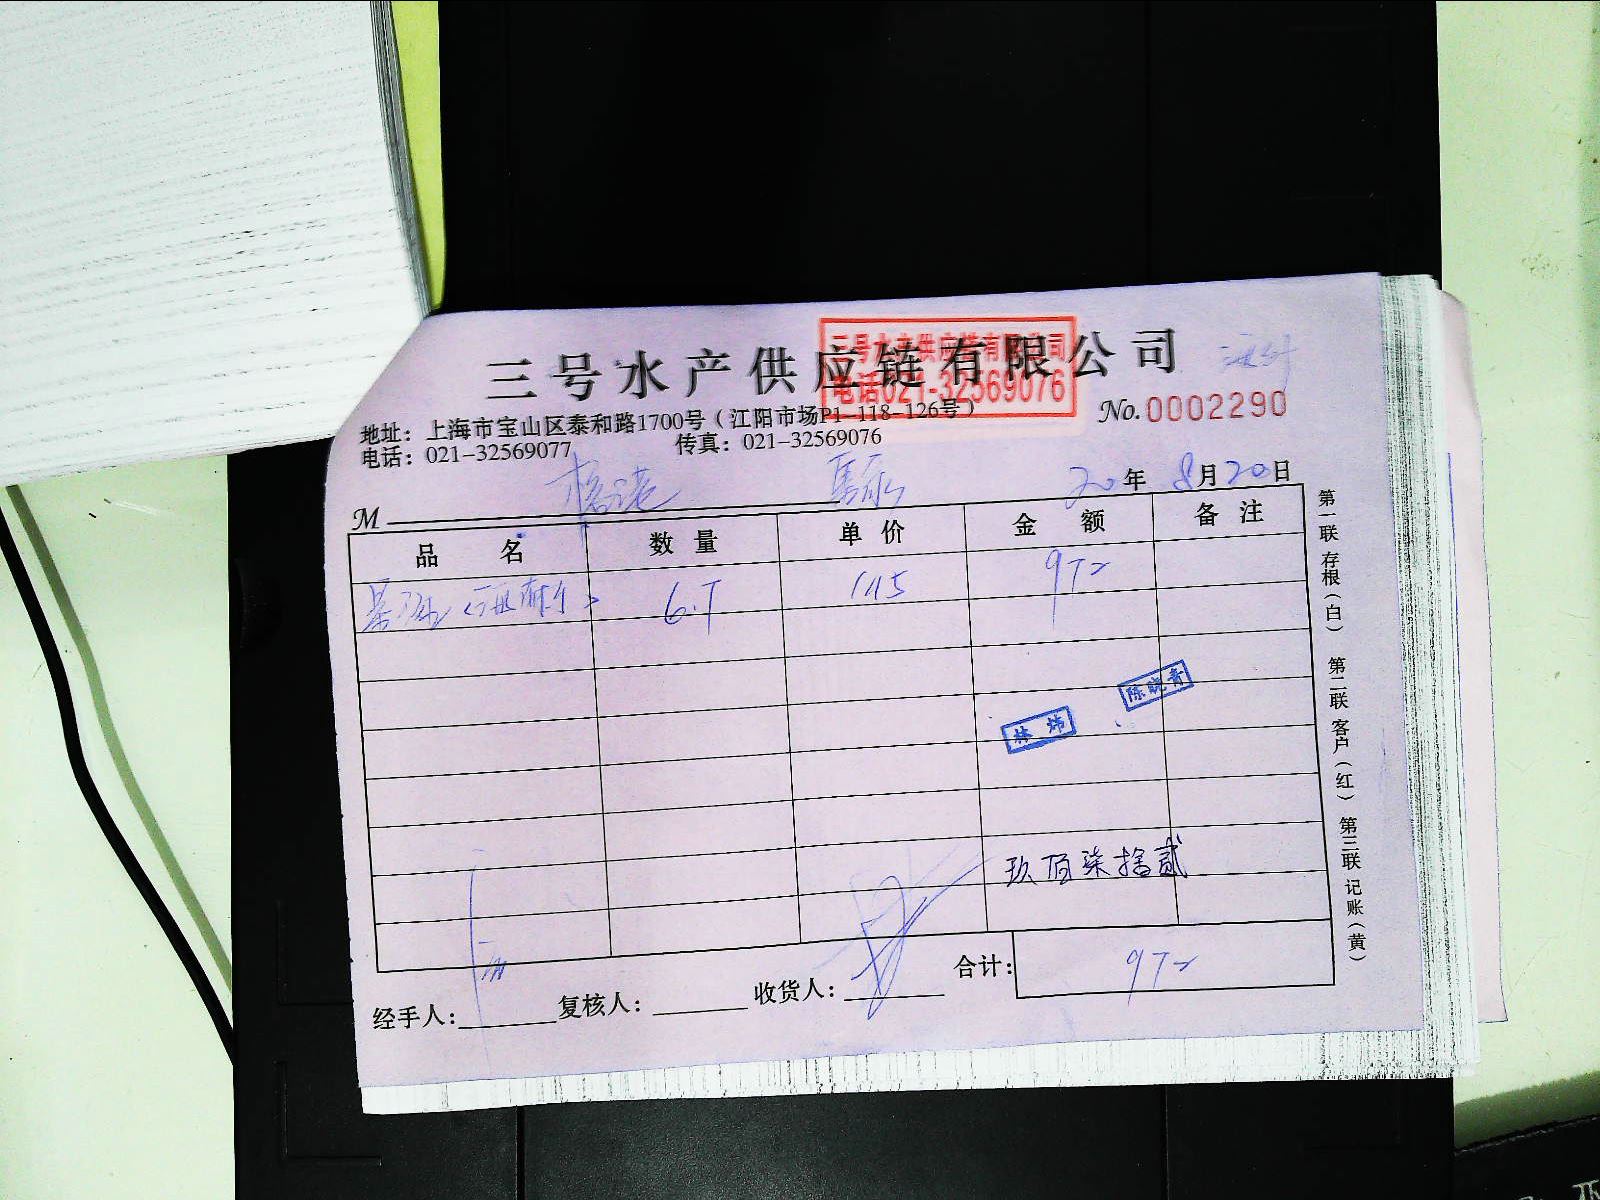 三号水产供应链有限公司
三号水产供应链有限公司
电话021-32569076
No.0002290
地址：上海市宝山区泰和路1700号（江阳市场P1-118-126号）
电话：021-32569077 传真：021-32569076
20年8月20日
M
品名 数量 单价 金额 备注
6.7 145 972
陈晓青
林炜
玖佰柒拾贰
合计： 972
经手人： 复核人： 收货人：
第一联 存根（白） 第二联 客户（红） 第三联 记账（黄）